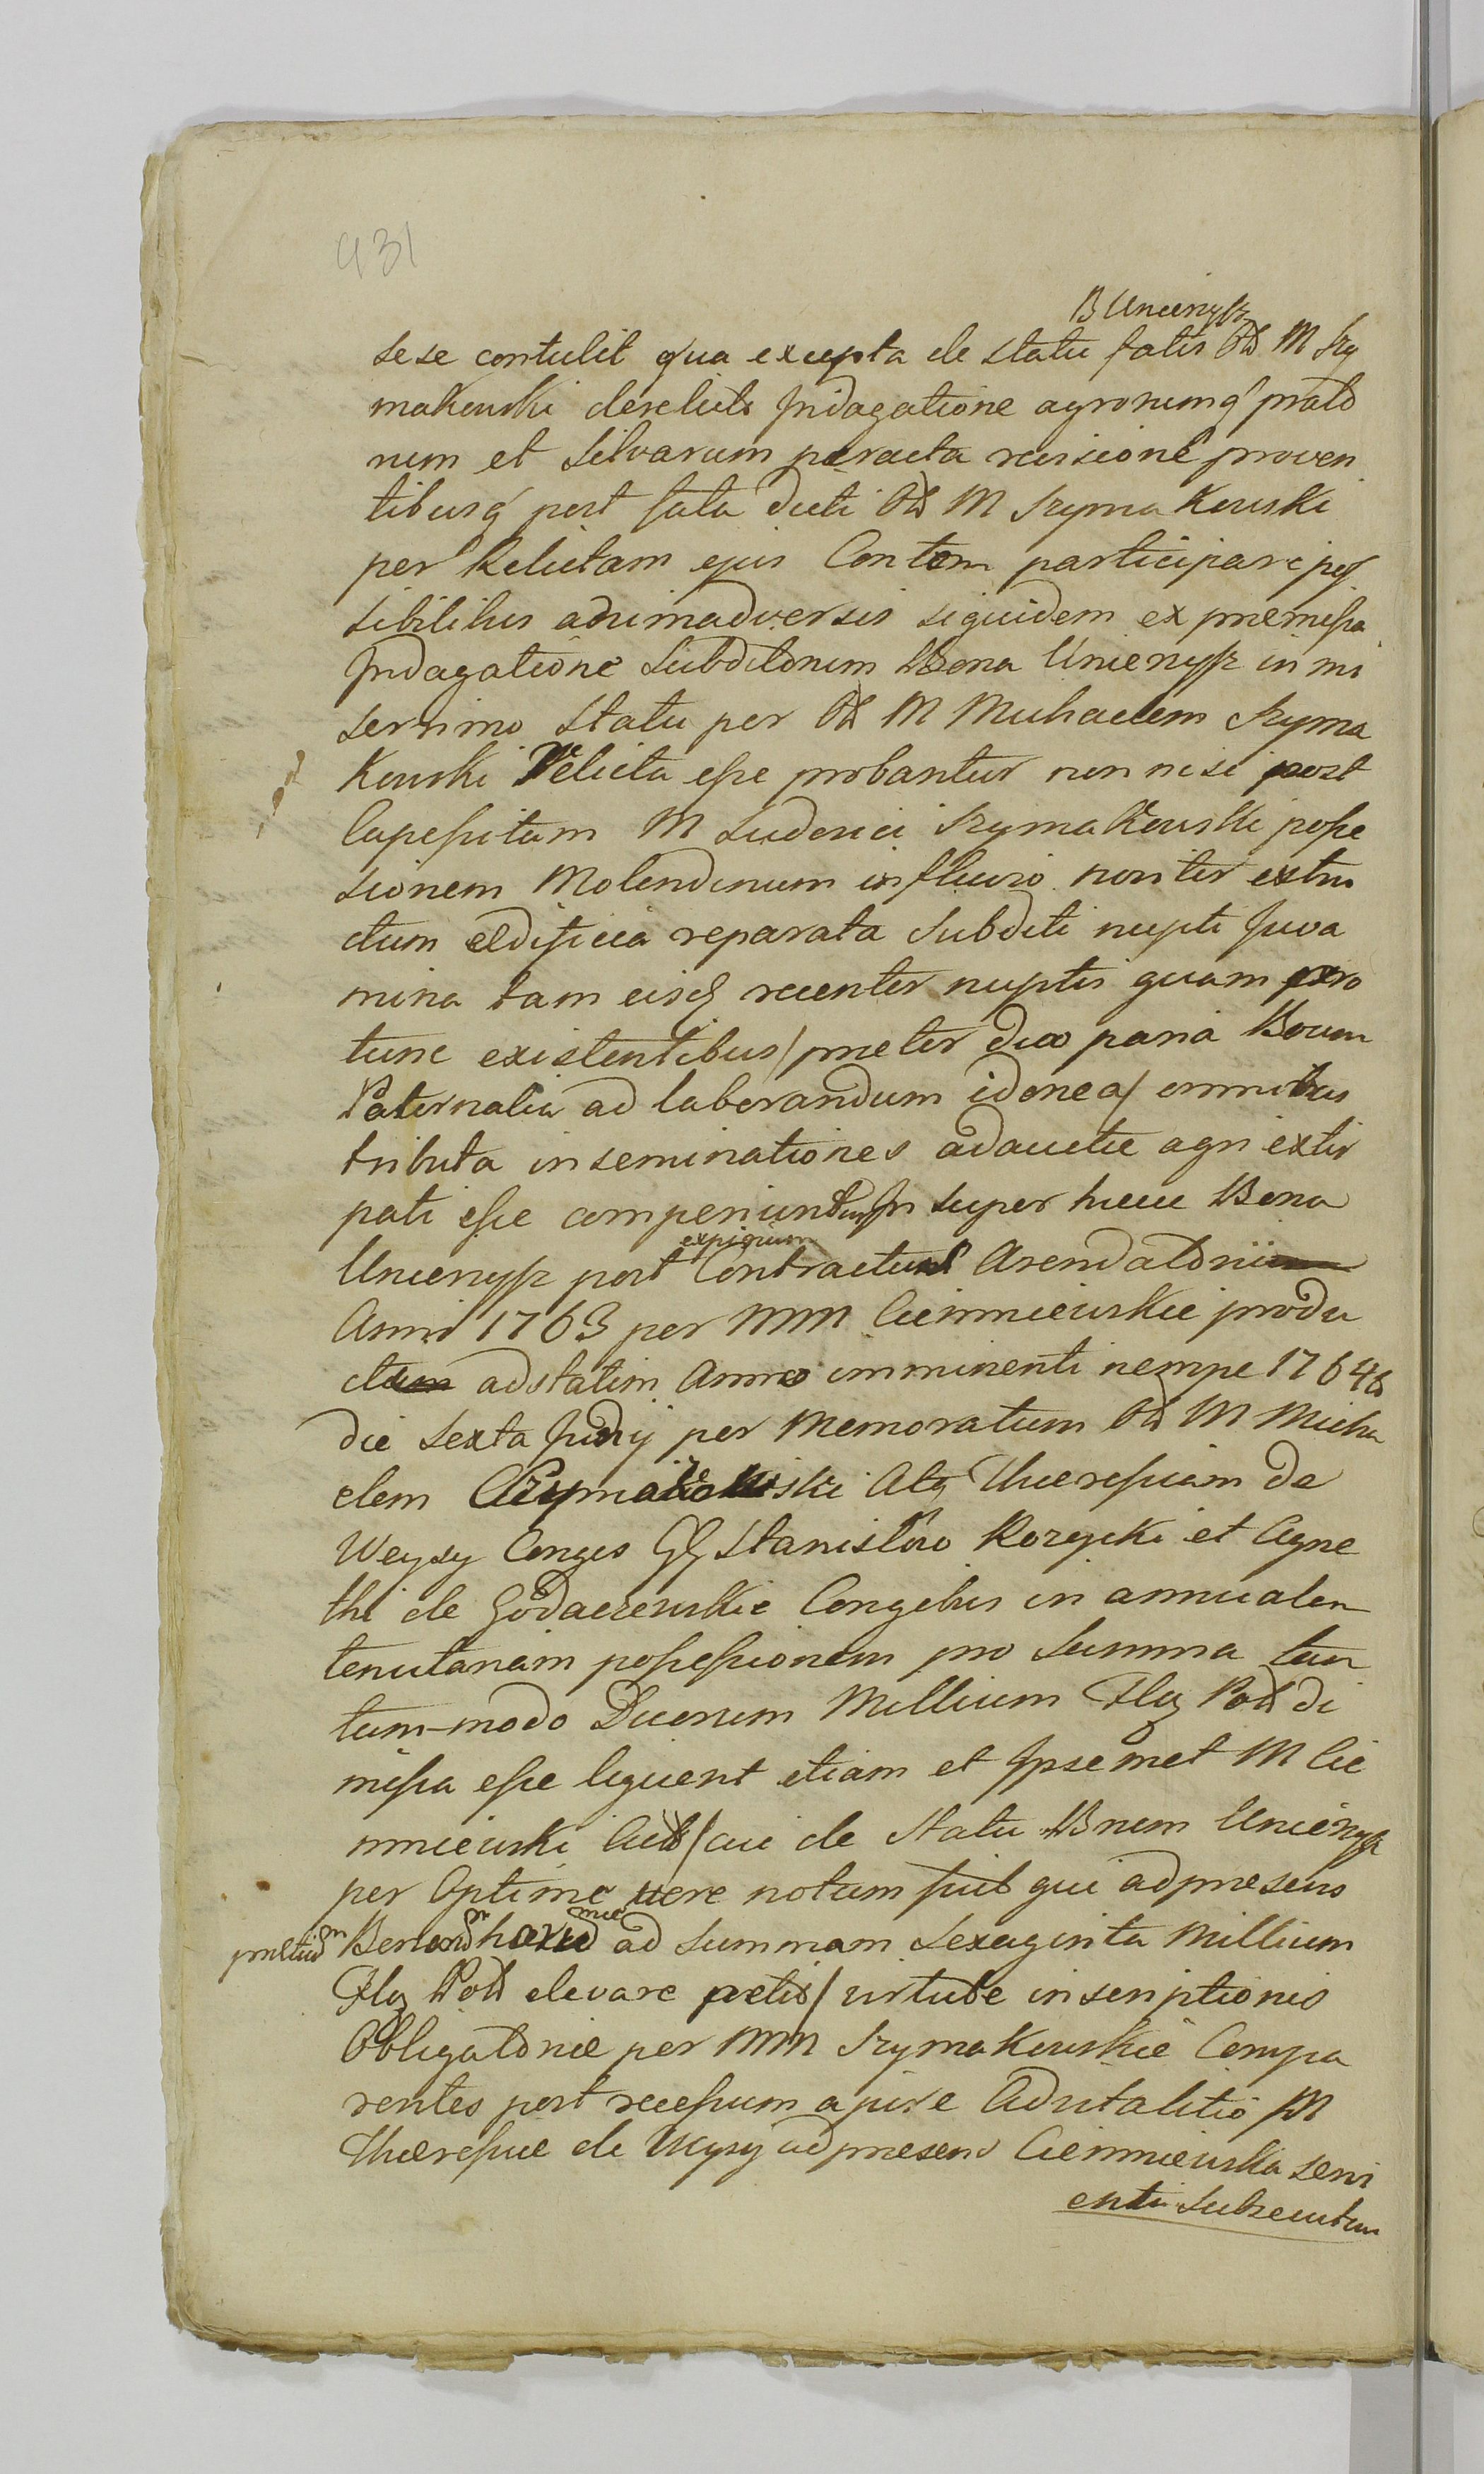 431
B Unienyſz
sese contulit qua excepta de statu fatis Od M Szy
makowski derelicto Indagatione agrorumq prato
rum et Silvarum peracta revisione proven
tibusq post fata dicti Od M Szymakowski
per Relictam ejus Contem participare poſ
sibilibus animadversis siquidem ex premiſsa
Indagatione Subditorum Bona Unienyſz in mi
serrimo statu per Od M Michaelem Szyma
kowski Relicta eſse probantur non nisi post
Capeſsitam M Ludovici Szymakowski poſse
sionem Molendinum in fluvio noviter extru
ctum aedificia reparata Subditi nupti Juva
mina tam eisq recenter nuptis quam pro
tunc existentibus / praeter duo paria Boum
Paternalia ad laborandum idonea / omnibus
tributa inseminationes adauctae agri extir
pati eſse comperiuntur In super haec Bona
expirium
Unienyſz post Contractus Arendatorii
Anni 1763 per MM Ciemniewskie produ
ctum ad statim Anno imminenti nempe 1764to
die Sexta Junij per Memoratum Od M Micha
elem Szymakowski Atq Theresiam de
Weysy Conges GG Stanislao Rozycki et Agne
thi de Godaczewskie Congebus in annualem
tenutariam poſseſsionem pro Summa tan
tum-modo Duorum Millium Flg Pol di
miſsa eſse liquent etiam et Ipsemet M Cie
mniewski / cui de Statu Bnem Unienyſz
per Optime vere notum fuit qui ad praesens
ad Summam Sexaginta Millium
Flg Pol elevare petit / virtute inscriptionis
Obligatoriae per MM Szymakowskie Compa
rentes post receſsum a jure Advitalitio M
Theresiae de Weysy ad praesens Ciemniewska servi
enti Subsecutum